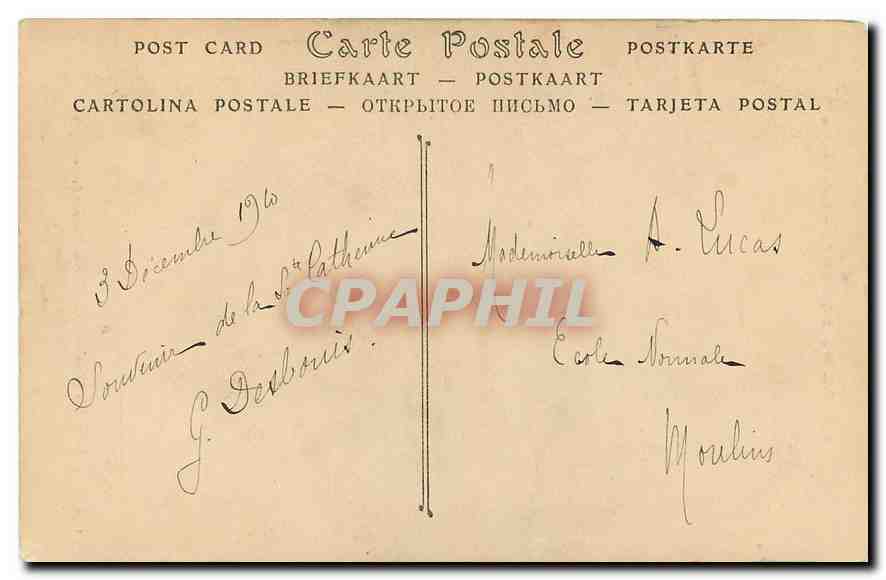 POST CARD Carte Postale POSTKARTE
BRIEFKAART — POSTKAART
CARTOLINA POSTALE — ОТКРЫТОЕ ПИСЬМО — TARJETA POSTAL
3 Décembre 1910
Souvenir de la Ste Catherine
G. Desbouis.
Mademoiselle A. Lucas
Ecole Normale
Moulins
CPAPHIL